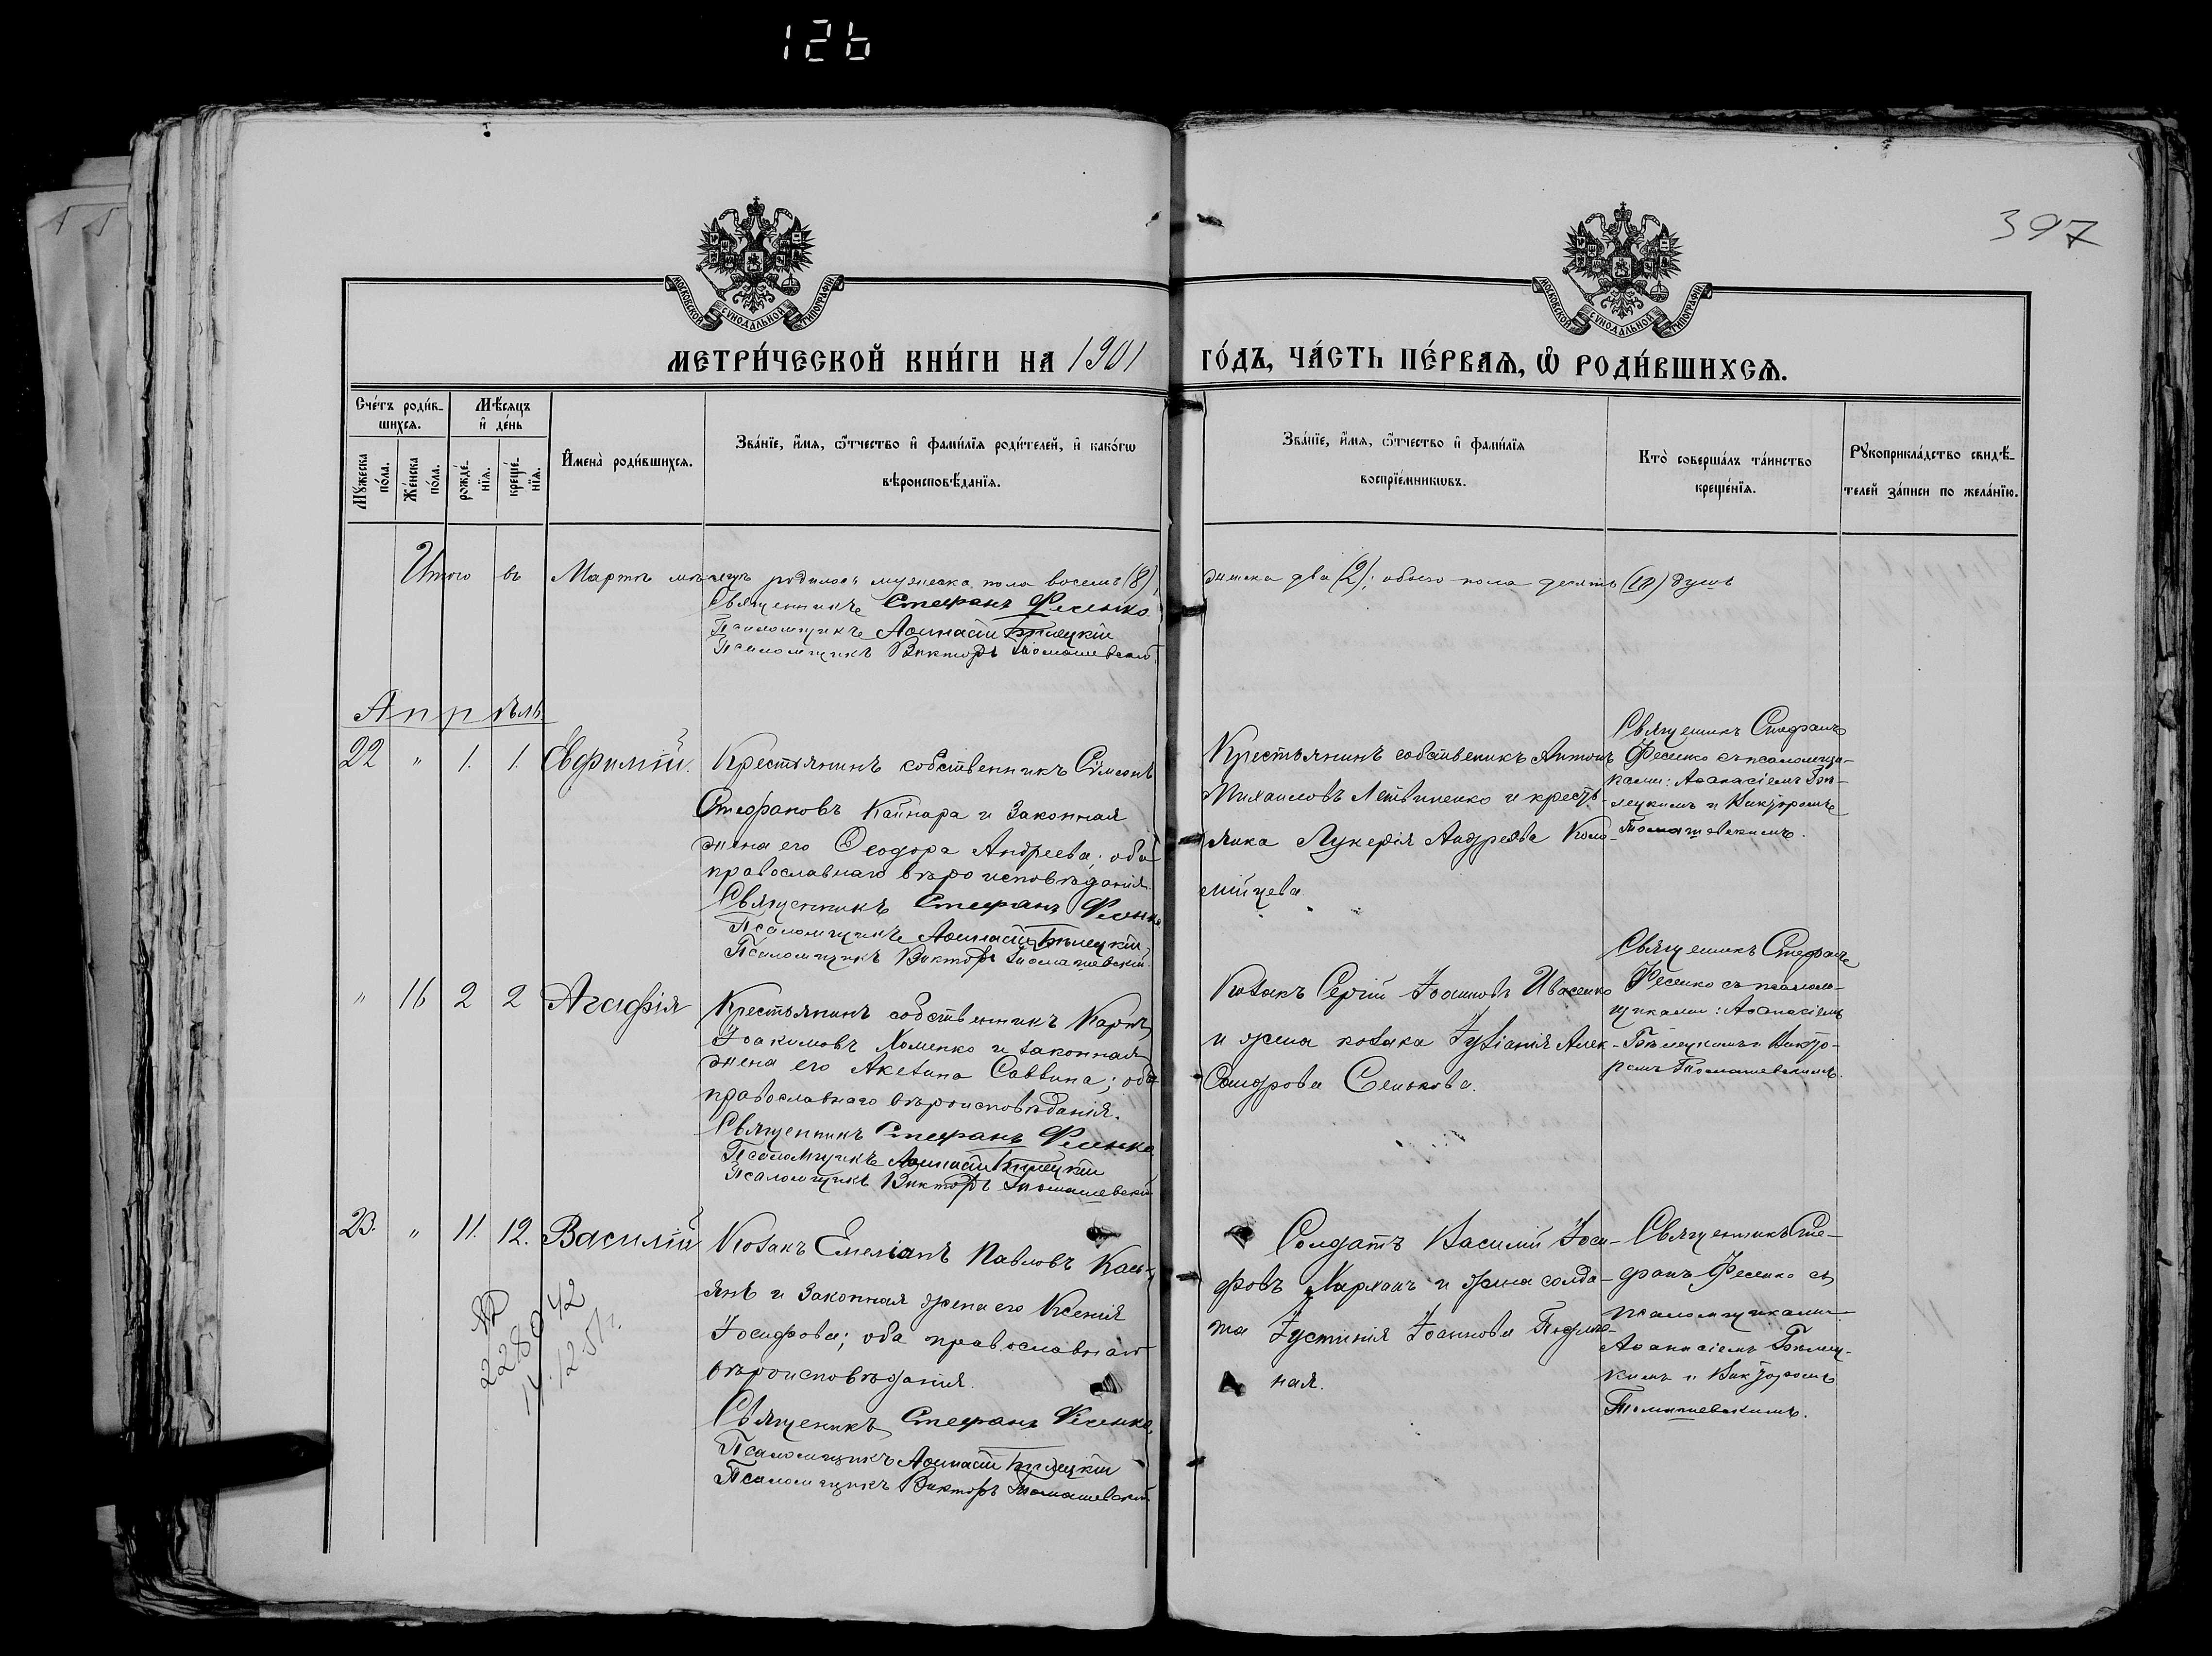 126
397
МОСКОВСКОЙ СѴНОДАЛЬНОЙ ТИПОГРАФІИ
МОСКОВСКОЙ СѴНОДАЛЬНОЙ ТИПОГРАФІИ
МЕТРИ́ЧЕСКОЙ КНИ́ГИ НА 1901 ГО́ДЪ, ЧА́СТЬ ПЕ́РВАѦ, Ѽ РОДИ́ВШИХСѦ.
Сче́тъ роди́в-
шихсѧ.
Мѣ́сѧцъ
и҆ де́нь
Мꙋ́жеска
по́ла.
Же́нска
по́ла.
рожде́-
нїѧ.
креще́-
нїѧ.
И҆мена̀ роди́вшихсѧ.
Зва́нїе, и҆́мѧ, ѻ҆́тчество и҆ фами́лїѧ роди́телей, и҆ како́гѡ
вѣроисповѣ́данїѧ.
Зва́нїе, и҆́мѧ, ѻ҆́тчество и҆ фами́лїѧ
воспрїе́мникѡвъ.
Кто̀ соверша́лъ та́инство
креще́нїѧ.
Рꙋкоприкла́дство свидѣ́-
телей за́писи по жела́нїю.
Итого въ Мартѣ мѣсяцѣ родилось мужеска пола восемь (8), женска два (2); обоего пола десять (10) душъ
Священникъ Стефанъ Фесенко
Псаломщикъ Аѳанасій Бѣлецкій
Псаломщикъ Викторъ Томашевскій
Апрѣль
22 " 1. 1. Евфимій.
Крестьянинъ собственникъ Сѵмеонъ
Стефановъ Кайнара и законная
жена его Ѳеодора Андреева; оба
православнаго вѣроисповѣданія.
Священникъ Стефанъ Фесенко
Псаломщикъ Аѳанасій Бѣлецкій
Псаломщикъ Викторъ Томашевскій
Крестьянинъ собственикъ Антонъ
Михаиловъ Литвиненко и кресть-
янка Лукерія Андреева Коло-
мійцева
Священикъ Стефанъ
Фесенко съ псаломщи-
ками: Аѳанасіемъ Бѣ-
лецкимъ и Викторомъ
Томашевскимъ.
" 16 2 2 Агафія
Крестьянинъ собственникъ Карпъ
Іоакимовъ Хоменко и законная
жена его Акелина Саввина; оба
православнаго вѣроисповѣданія.
Священникъ Стефанъ Фесенко
Псаломщикъ Аѳанасій Бѣлецкій
Псаломщикъ Викторъ Томашевскій
Козакъ Сергій Іоанновъ Ивасенко
и жена козака Іуліанія Алек-
сандрова Сенькова.
Священикъ Стефанъ
Фесенко съ псалом-
щиками: Аѳанасіемъ
Бѣлецкимъ и Викто-
ромъ Томашевскимъ.
23. " 11. 12. Василій
Козакъ Емеліанъ Павловъ Кась-
янъ и законная жена его Ксенія
Іосифова; оба православнаго
вѣроисповѣданія.
Священикъ Стефанъ Фесенко
Псаломщикъ Аѳанасій Бѣлецкій
Псаломщикъ Викторъ Томашевскій
228042
14.12.51г.
Солдатъ Василій Іоси-
фовъ Харханъ и жена солда-
та Іустинія Іоаннова
ная.
Священникъ Сте-
фанъ Фесенко съ
псаломщиками
Аѳанасіемъ Бѣлец-
кимъ и Викторомъ
Томашевскимъ.